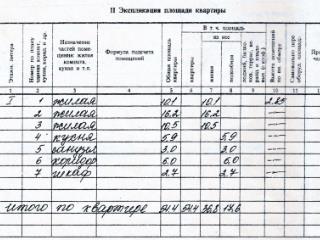 II Экспликация площади квартиры
Этаж, литера
Назначение частей помещения: жилая комната, кухня и т.п.
Формула подсчета помещений
Общая площадь квартиры
В т. ч. площадь
из нее
квартиры
жилая
подсобная
1 2 3 4 5 6 7 8 9 10 11 12
I 1 жилая 10.1 10.1 2.85
2 жилая 16.2 16.2
3 жилая 10.5 10.5
4 кухня 5.9 5.9
5 санузел 3.0 3.0
6 коридор 6.0 6.0
7 шкаф 2.7 2.7
Итого по квартире 54.4 54.4 36.8 17.6